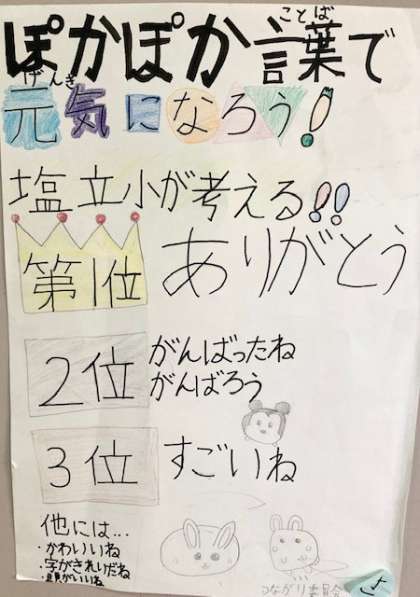 ぽかぽか言葉で
ことば
元気になろう!
げんき
塩立小が考える!!
第1位 ありがとう
2位 がんばったね
がんばろう
3位 すごいね
他には...
・かわいいね
・字がきれいだね
・顔がいいね
つながり委員会